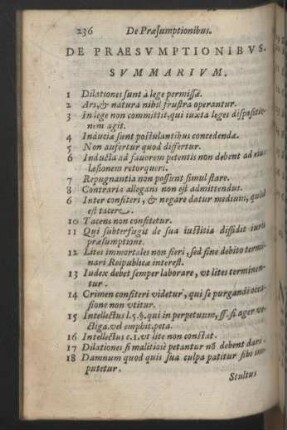 236 De Præsumptionibus.
DE PRAESVMPTIONIBVS.
SVMMARIVM.
1 Dilationes sunt à lege permissæ.
2 Ars, & natura nihil frustra operantur.
3 In lege non committit, qui iuxta leges dispositio-
nem agit.
4 Inducia sunt postulantibus concedendæ.
5 Non aufertur quod differtur.
6 Inducta ad fauorem petentis non debent ad eius
læsionem retorqueri.
7 Repugnantia non possunt simul stare.
8 Contraria allegans non est admittendus.
9 Inter confiteri, & negare datur medium, quod
est tacere.
10 Tacens non confitetur.
11 Qui subterfugit de sua iustitia diffidit iuris
præsumptione.
12 Lites immortales non fieri, sed fine debito termi-
nari Reipublicæ interest.
13 Iudex debet semper laborare, vt lites terminen-
tur.
14 Crimen confiteri videtur, qui se purgandi occa-
sione non vtitur.
15 Intellectus l. 5. §. qui in perpetuum, ff. si ager ve-
ctiga. vel emphit. peta.
16 Intellectus c. 1. vt lite non constat.
17 Dilationes si malitiosè petantur nõ debent dari.
18 Damnum quod quis sua culpa patitur sibi im-
putetur.
Stultus